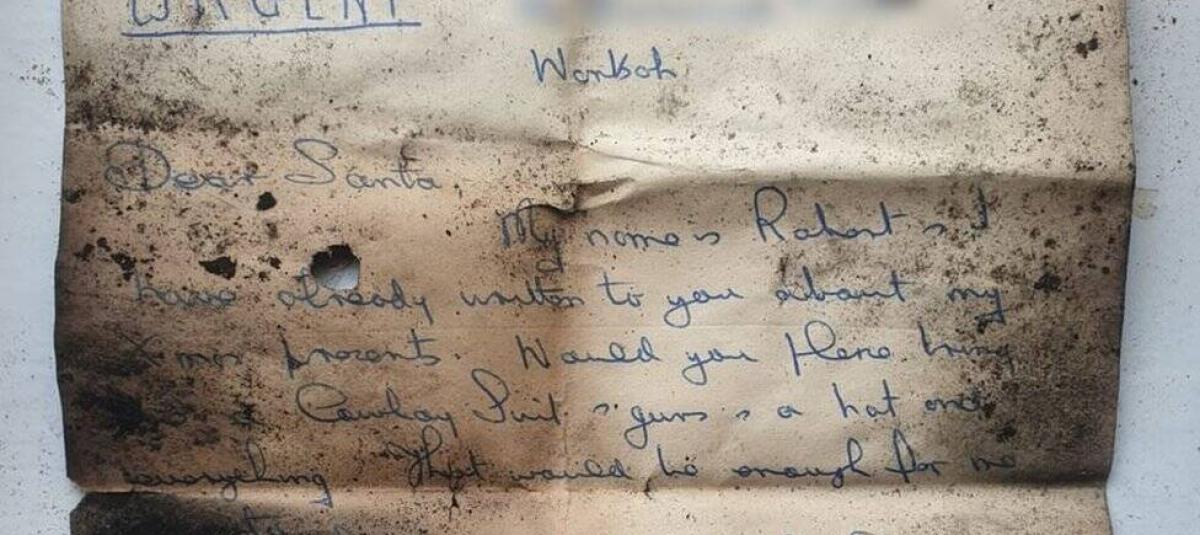 URGENT
Worksoh
Dear Santa
My name is Robert & I
have already written to you about my
X mas presents. Would you please bring
a Cowboy Suit & guns & a hat and
everything. That would be enough for me